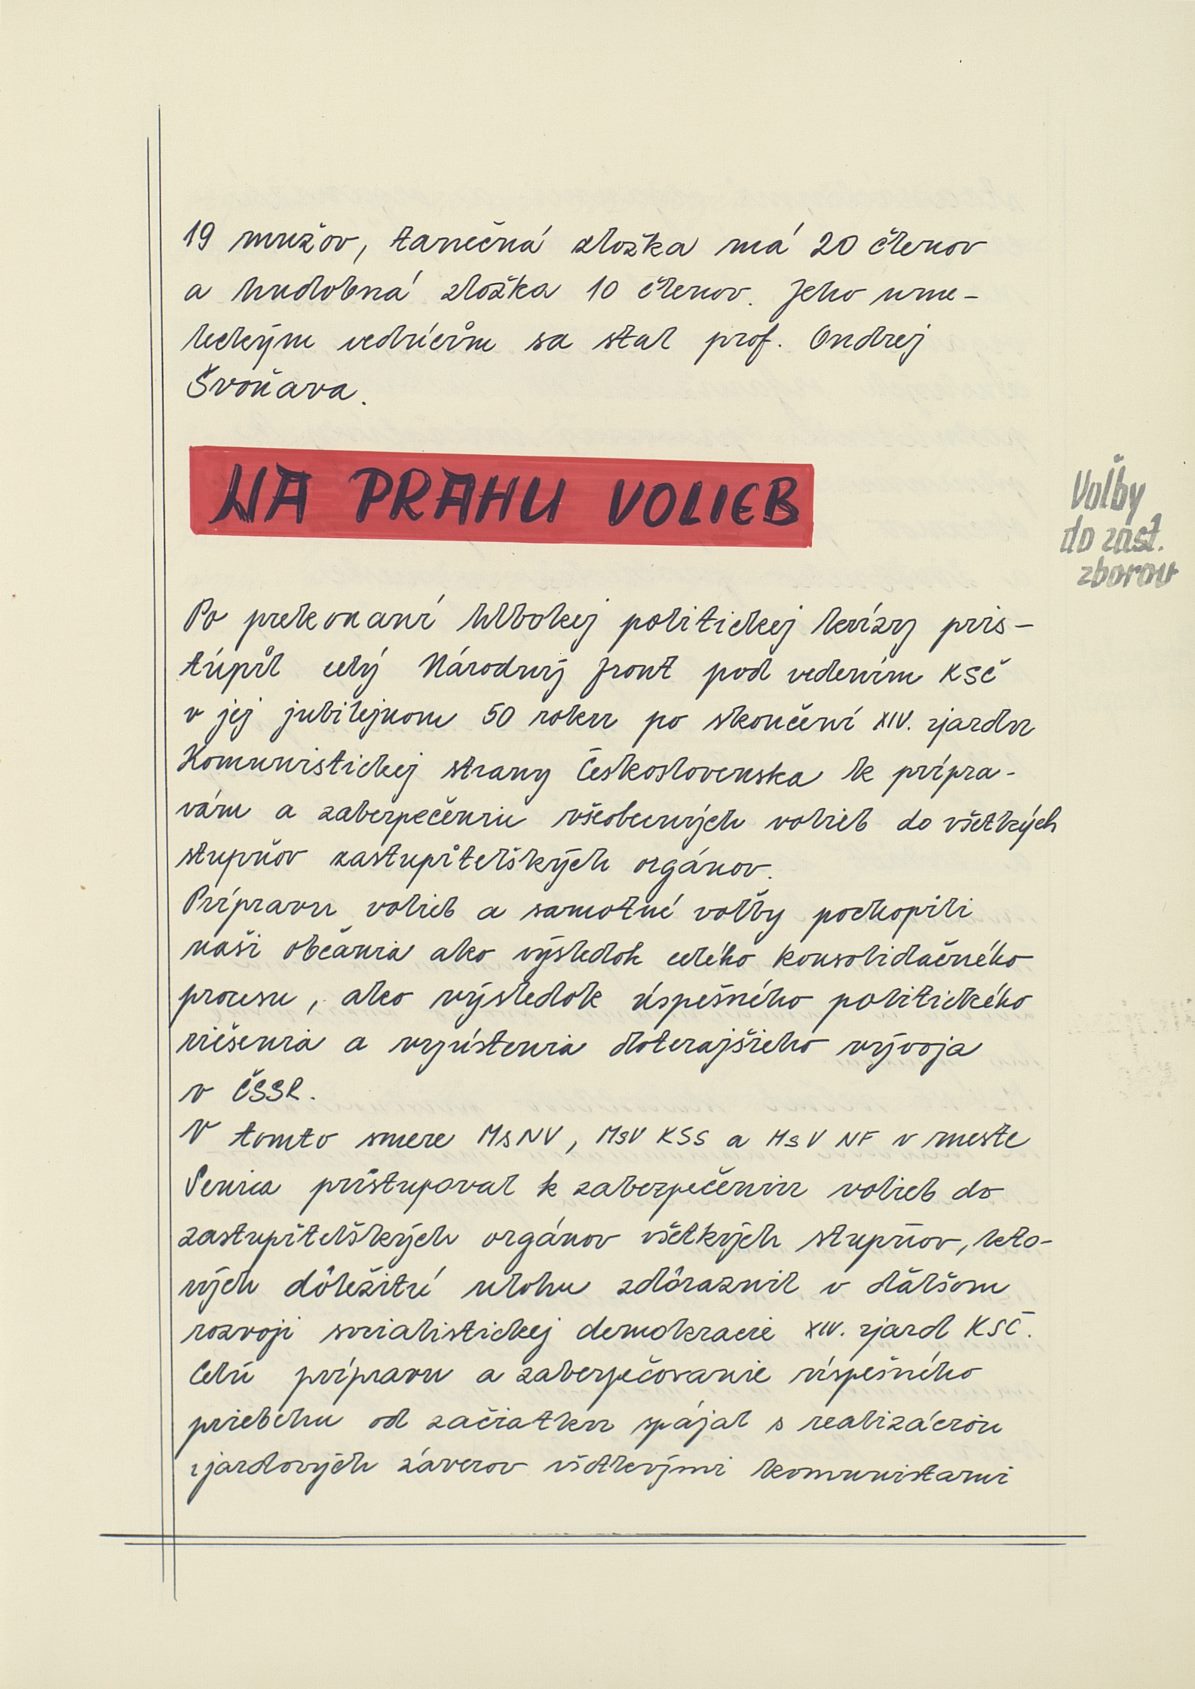 19 mužov, tanečná zložka má 20 členov
a hudobná zložka 10 členov. Jeho ume-
leckým vedúcim sa stal prof. Ondrej
Švoňava.
NA PRAHU VOLIEB
Voľby
do zast.
zborov
Po prekonaní hlbokej politickej krízy pris-
túpil celý Národný front pod vedením KSČ
v jej jubilejnom 50 roku po skončení XIV. zjazdu
Komunistickej strany Československa k prípra-
vám a zabezpečeniu všeobecných volieb do všetkých
stupňov zastupiteľských orgánov.
Prípravu volieb a samotné voľby pochopili
naši občania ako výsledok celého konsolidačného
procesu, ako výsledok úspešného politického
riešenia a vyústenia doterajšieho vývoja
v ČSSR.
V tomto smere MsNV, MsV KSS a MsV NF v meste
Senica pristupoval k zabezpečeniu volieb do
zastupiteľských orgánov všetkých stupňov, kto-
rých dôležitú úlohu zdôraznil v ďalšom
rozvoji socialistickej demokracie XIV. zjazd KSČ.
Celú prípravu a zabezpečovanie úspešného
priebehu od začiatku spájal s realizáciou
zjazdových záverov všetkými komunistami